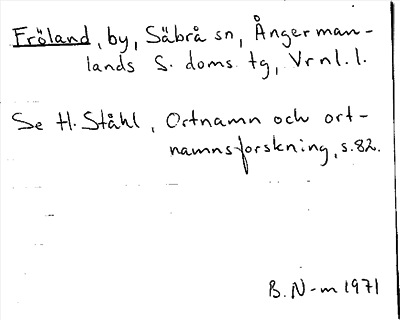 Fröland, by, Säbrå sn, Ångerman-
lands S. doms. tg, Vrnl. l.
Se H. Ståhl, Ortnamn och ort-
namnsforskning, s. 82.
B. N-m 1971